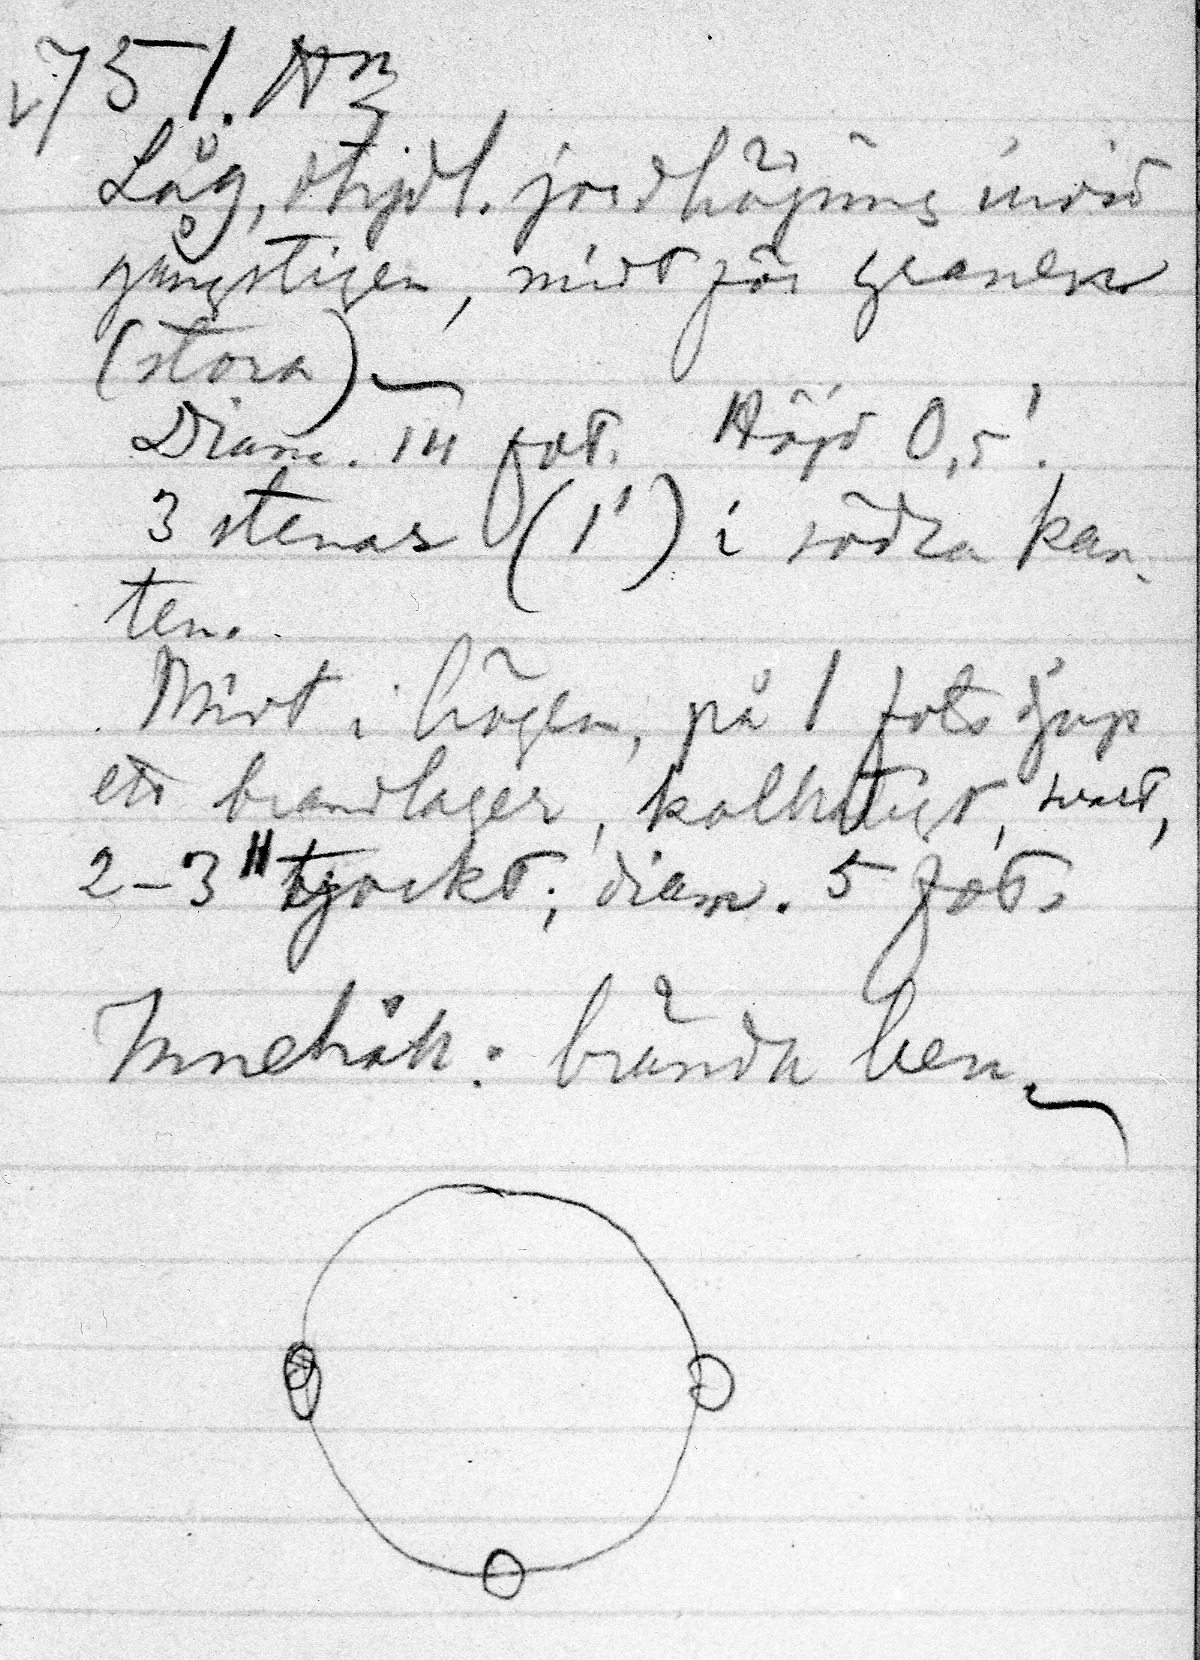 751. A 3
Låg, otydl. jordhög invid
gångstigen, midt för granen
(stora)
Diam. 14 fot. Höjd 0,5'.
3 stenar (1') i södra kan-
ten.
Midt i högen, på 1 fots djup
ett brandlager, kolhaltigt, svart,
2-3" tjockt; diam. 5 fot.
Innehöll: brända ben.